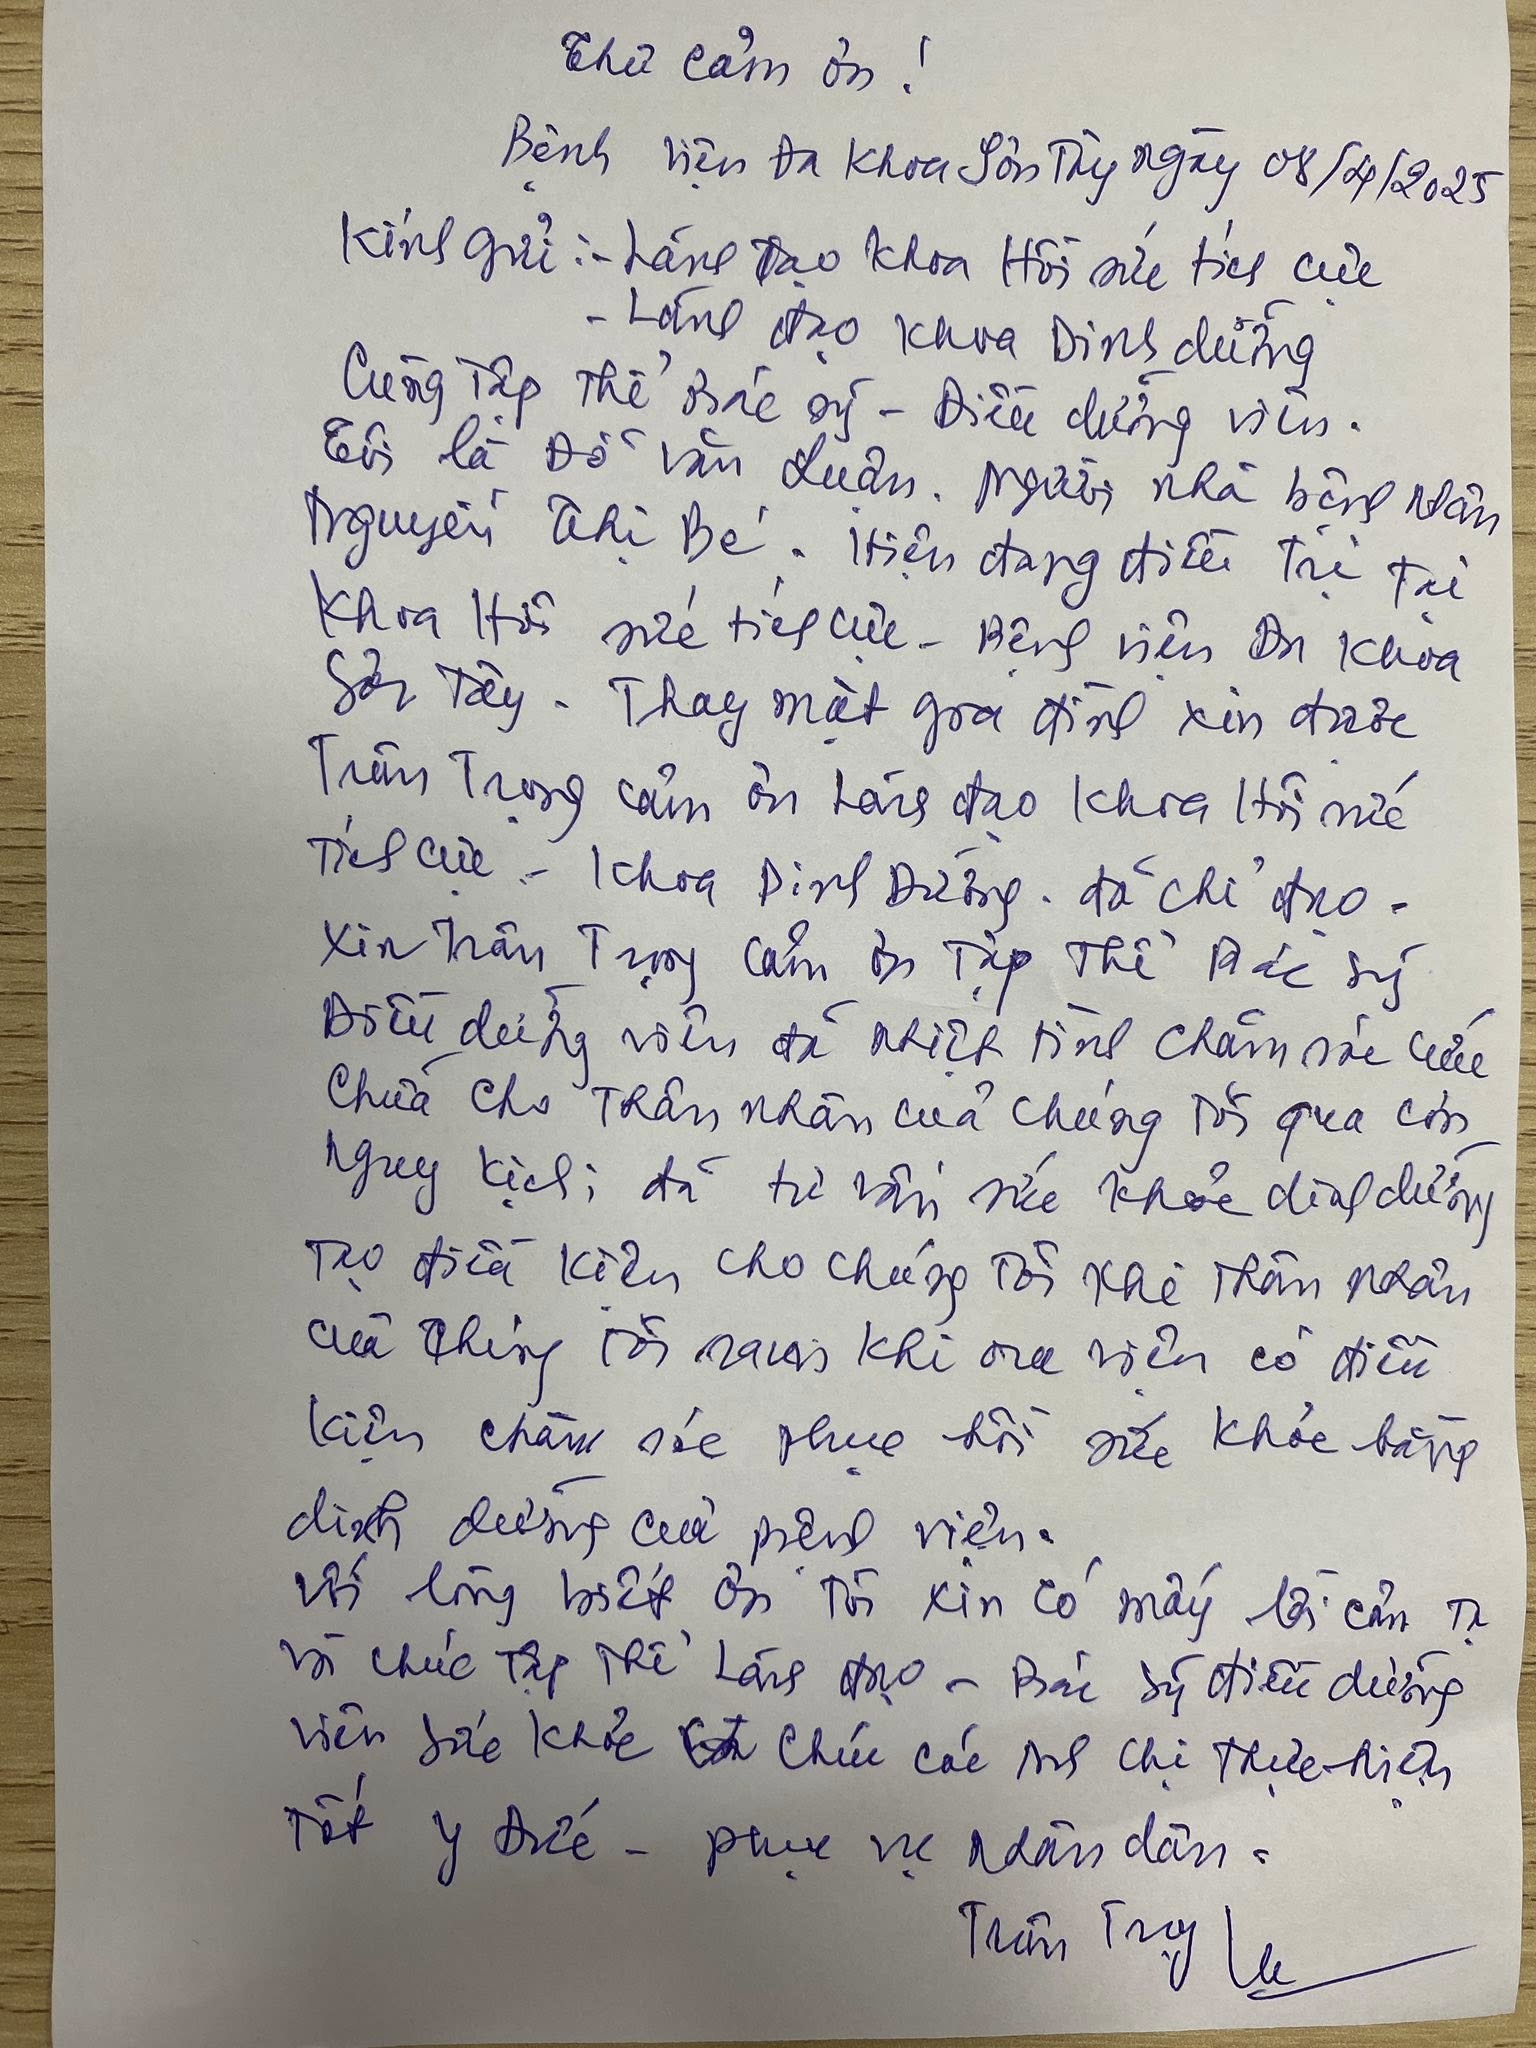 Thư cảm ơn!
Bệnh viện Đa Khoa Sơn Tây ngày 08/4/2025
Kính gửi: - Lãnh Đạo Khoa Hồi sức tích cực
- Lãnh đạo Khoa Dinh dưỡng
Cùng Tập Thể Bác sỹ - Điều dưỡng viên.
Tôi là Đỗ Văn Luận. Người nhà bệnh nhân
Nguyễn Thị Bé. Hiện đang điều Trị Tại
Khoa Hồi sức tích cực - Bệnh viện Đa Khoa
Sơn Tây. Thay mặt gia đình xin được
Trân Trọng cảm ơn Lãnh đạo Khoa Hồi sức
Tích cực - Khoa Dinh Dưỡng. đã chỉ đạo.
Xin Trân Trọng cảm ơn Tập Thể Bác sỹ
Điều dưỡng viên đã nhiệt tình chăm sóc cứu
Chữa cho Thân nhân của chúng Tôi qua cơn
nguy kịch; đã tư vấn sức khỏe dinh dưỡng
Tạo điều kiện cho chúng Tôi khi Thân nhân
của chúng Tôi sau khi ra viện có điều
kiện chăm sóc phục hồi sức khỏe bằng
dinh dưỡng của bệnh viện.
Với lòng biết ơn Tôi xin có mấy lời cảm Tạ
và chúc Tập Thể Lãnh đạo - Bác sỹ điều dưỡng
viên sức khỏe chúc các Anh Chị Thực hiện
Tốt y Đức - phục vụ nhân dân.
Trân Trọng